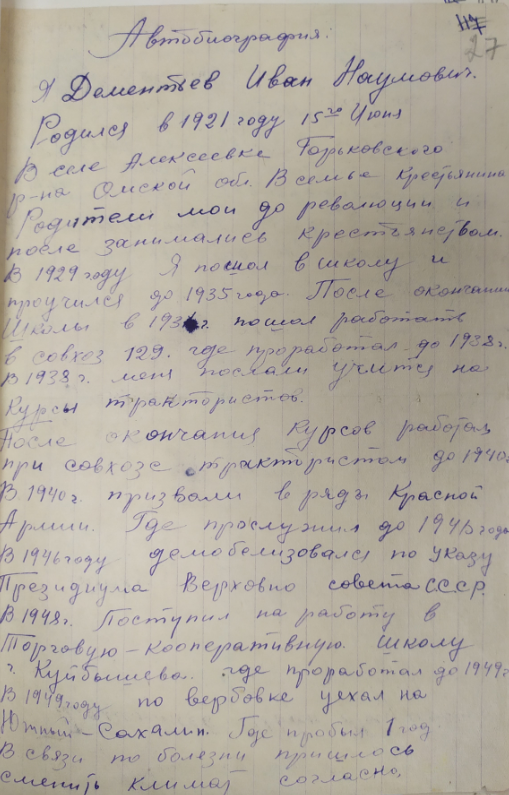 27
Автобиография.
Я Дементьев Иван Наумович.
Родился в 1921 году 15го Июня
В селе Алексеевка Горьковского
р-на Омской обл. В семье Крестьянина
Родители мои до революции и
после занимались крестьянством.
В 1929 году Я пошол в школу и
проучился до 1935 года. После окончания
Школы в 193 г. пошол работать
в совхоз 129. где проработал до 1938 г.
В 1938 г. меня послали учится на
Курсы трактористов.
После окончания Курсов работал
при совхозе трактористом до 1940 г.
В 1940 г. призвали в ряды Красной
Армии. Где прослужил до 1946 года
В 1946 году демобелизовался по Указу
Президиума Верховно совета СССР.
В 1948 г. Поступил на работу в
Торговую-кооперативную школу
г. Куйбышева. где проработал до 1949 г.
В 1949 году по вербовке уехал на
Южный-Сахалин. Где пробыл 1 год
В связи по болезни пришлось
сменить климат согласно,